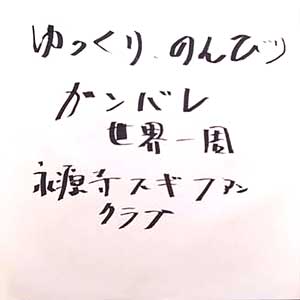 ゆっくり、のんびり
ガンバレ
世界一周
永源寺スギファン
クラブ